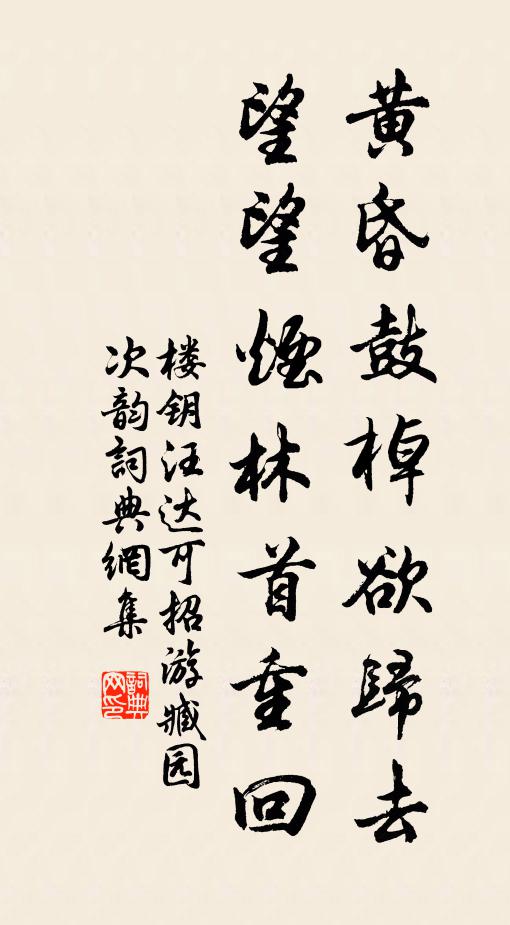 黄昏鼓棹欲歸去
望望煙林首重回
楼钥汪达可招游臧园
次韵詞典網集
詞典
网印